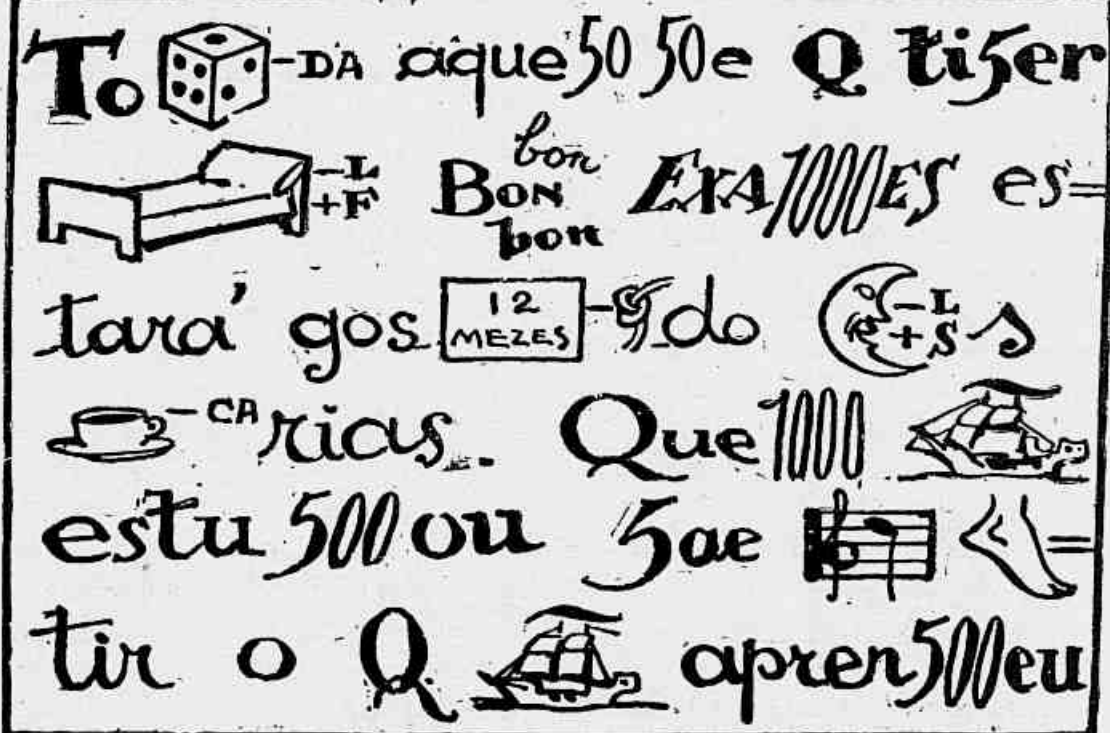 To -DA aque 50 50e Q ti5er
-L +F BON bon bon EXA1000ES es=
tará gos 12 MEZES -9 do -L +S s
-CA rias. Que 1000
estu500ou 5ae =
tir o Q apren500eu